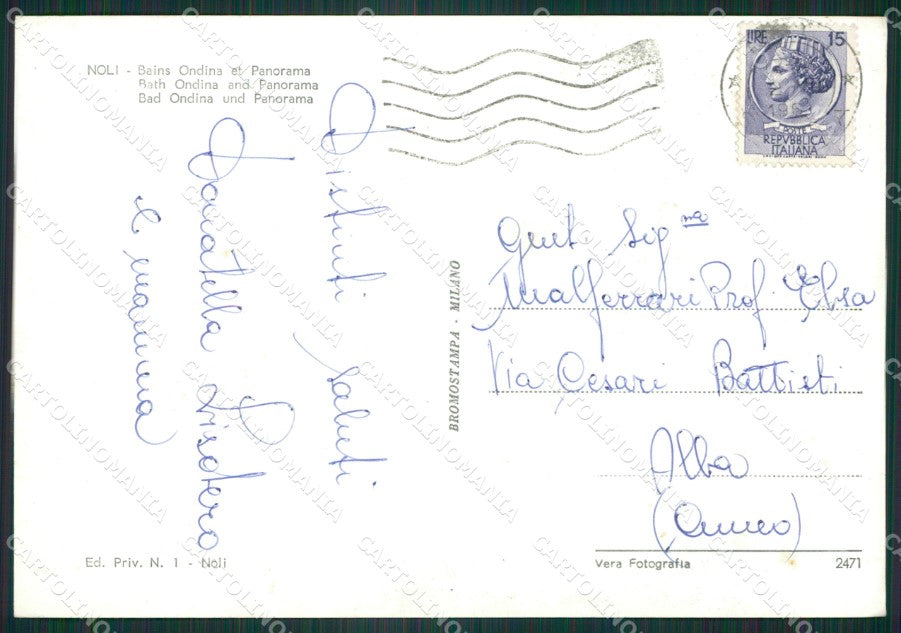 NOLI - Bains Ondina et Panorama
Bath Ondina and Panorama
Bad Ondina und Panorama
Distinti saluti
Donatella
e mamma
BROMOSTAMPA - MILANO
LIRE 15
POSTE
REPVBBLICA
ITALIANA
Gent Sig.ma
Malferrari Prof. Elsa
Via Cesari Battisti
Alba
(Cuneo)
Ed. Priv. N. 1 - Noli
Vera Fotografia 2471
CARTOLINOMANIA